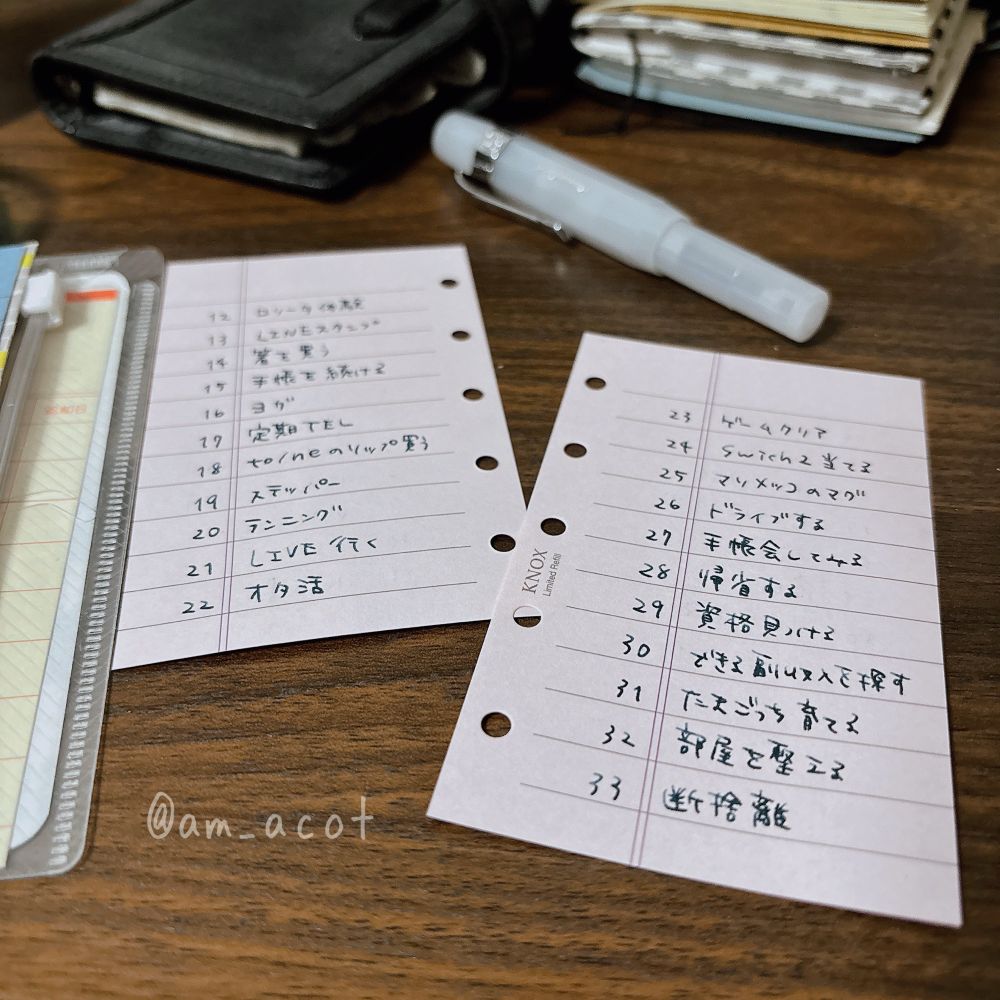 12 ロリータ体験
13 LINEスタンプ
14 箸を買う
15 手帳を続ける
16 ヨガ
17 定期TEL
18 to/oneのリップ買う
19 ステッパー
20 ランニング
21 LIVE行く
22 オタ活
KNOX
Limited Refill
23 ゲームクリア
24 Swich2当てる
25 マリメッコのマグ
26 ドライブする
27 手帳会してみる
28 帰省する
29 資格見つける
30 できる副収入を探す
31 たまごっち育てる
32 部屋を整える
33 断捨離
@am_acot